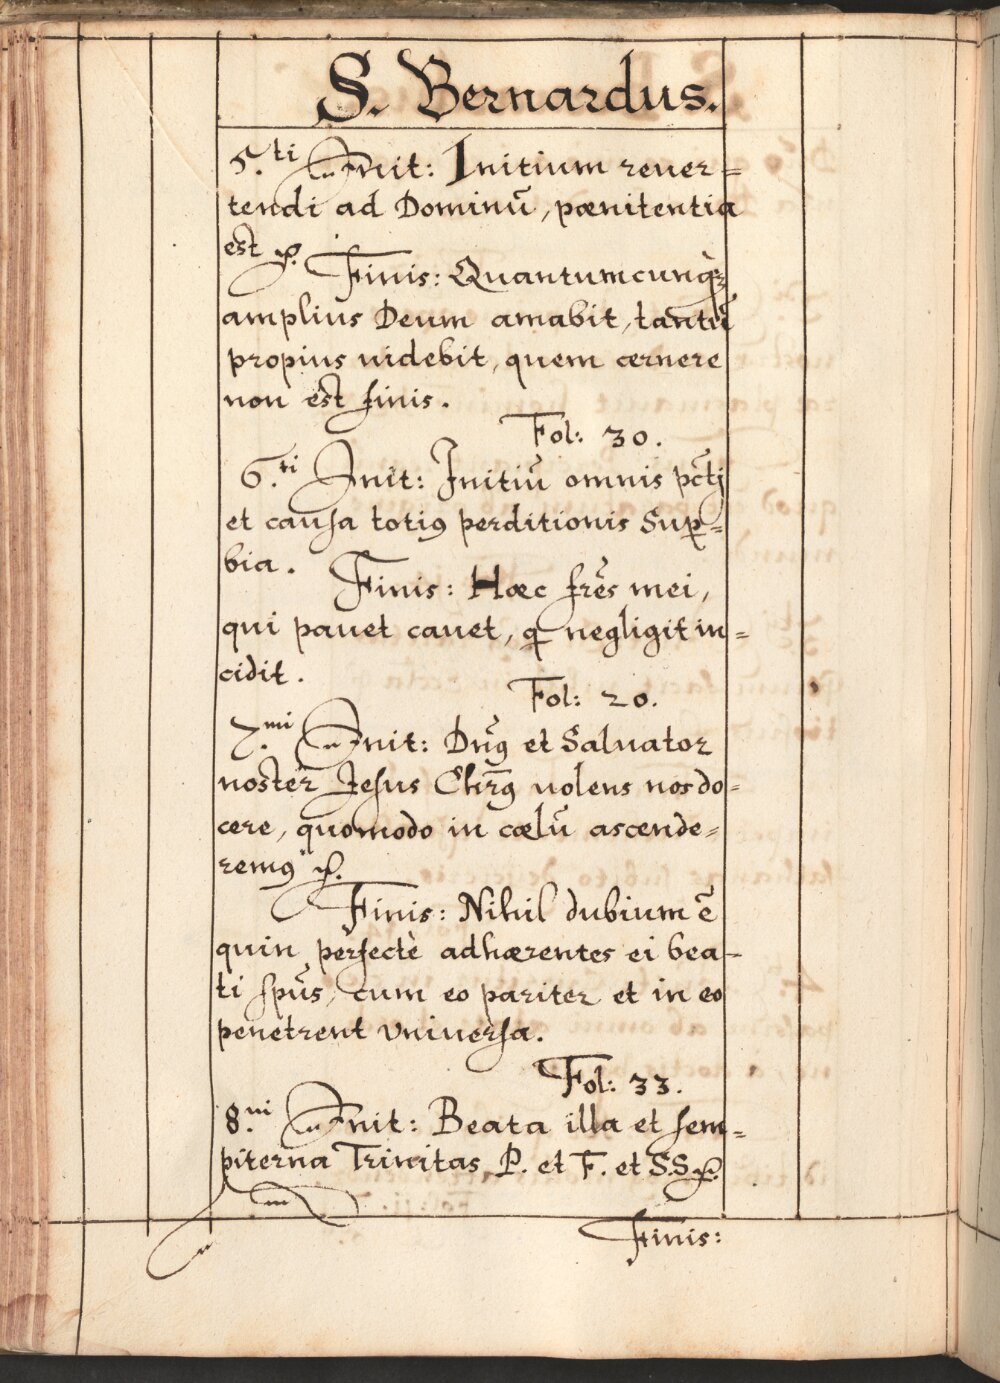 S. Bernardus.
5.ti Init: Initium reuer=
tendi ad Dominū, pænitentia
est &.
Finis: Quantumcunq̀₃
amplius Deum amabit, tantū
propius uidebit, quem cernere
non est finis.
Fol: 30.
6.ti Init: Initiū omnis pc̄tj
et causa totiꝰ perditionis Sup=
bia.
Finis: Hæc frēs mei,
qui pauet cauet, q negligit in=
cidit.
Fol: 20.
7.mi Init: Dn̄ꝰ et Saluator
noster Jesus Chr̄ꝰ uolens nos do=
cere, quomodo in cœlū ascende=
remꝰ &.
Finis: Nihil dubium ē
quin perfectè adhærentes ei bea=
ti spūs, cum eo pariter et in eo
penetrent vniuersa.
Fol: 33.
8.ui Init: Beata illa et sem=
piterna Trinitas P. et F. et S.S. &.
Finis: